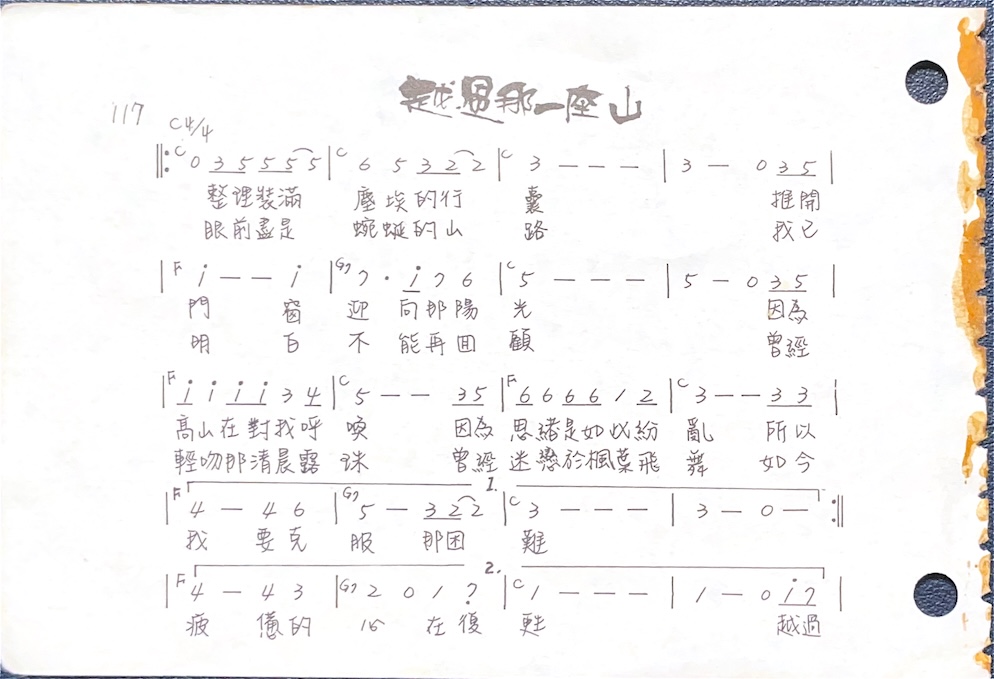 越過那一座山
117
C 4/4
‖: C 0 3 5 5 5 5 | C 6 5 3 2 2 | C 3 – – – | 3 – 0 3 5 |
整理裝滿 塵埃的行 囊 推開
眼前盡是 蜿蜒的山 路 我已
| F i – – i | G7 7 · i 7 6 | C 5 – – – | 5 – 0 3 5 |
門 窗 迎 向那陽 光 因為
明白 不 能再回 顧 曾經
| F i i i i 3 4 | C 5 – – 3 5 | F 6 6 6 6 1 2 | C 3 – – 3 3 |
高山在對我呼 喚 因為 思緒是如此紛 亂 所以
輕吻那清晨露 珠 曾經 迷戀於楓葉飛 舞 如今
1.
| F 4 – 4 6 | G7 5 – 3 2 2 | C 3 – – – | 3 – 0 – :‖
我 要克 服 那困 難
2.
| F 4 – 4 3 | G7 2 0 1 7 | C 1 – – – | 1 – 0 i 7 |
疲 憊的 心 在復 甦 越過